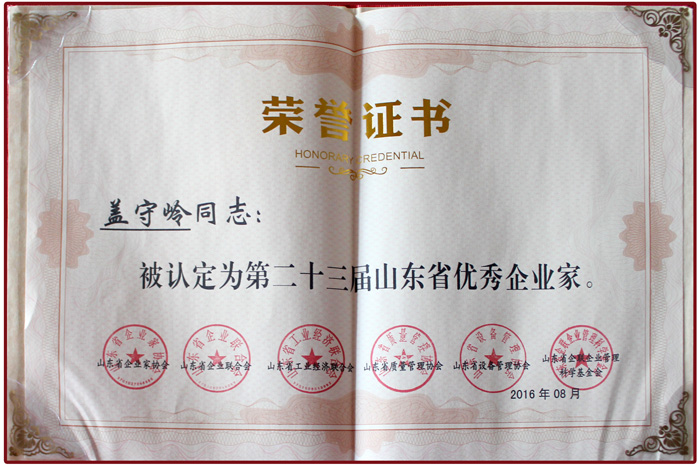 荣誉证书
HONORARY CREDENTIAL
盖守岭同志：
被认定为第二十三届山东省优秀企业家。
山东省企业家协会 山东省企业联合会 山东省工业经济联合会 山东省质量管理协会 山东省设备管理协会 山东省企联企业管理
科学基金会
2016年08月